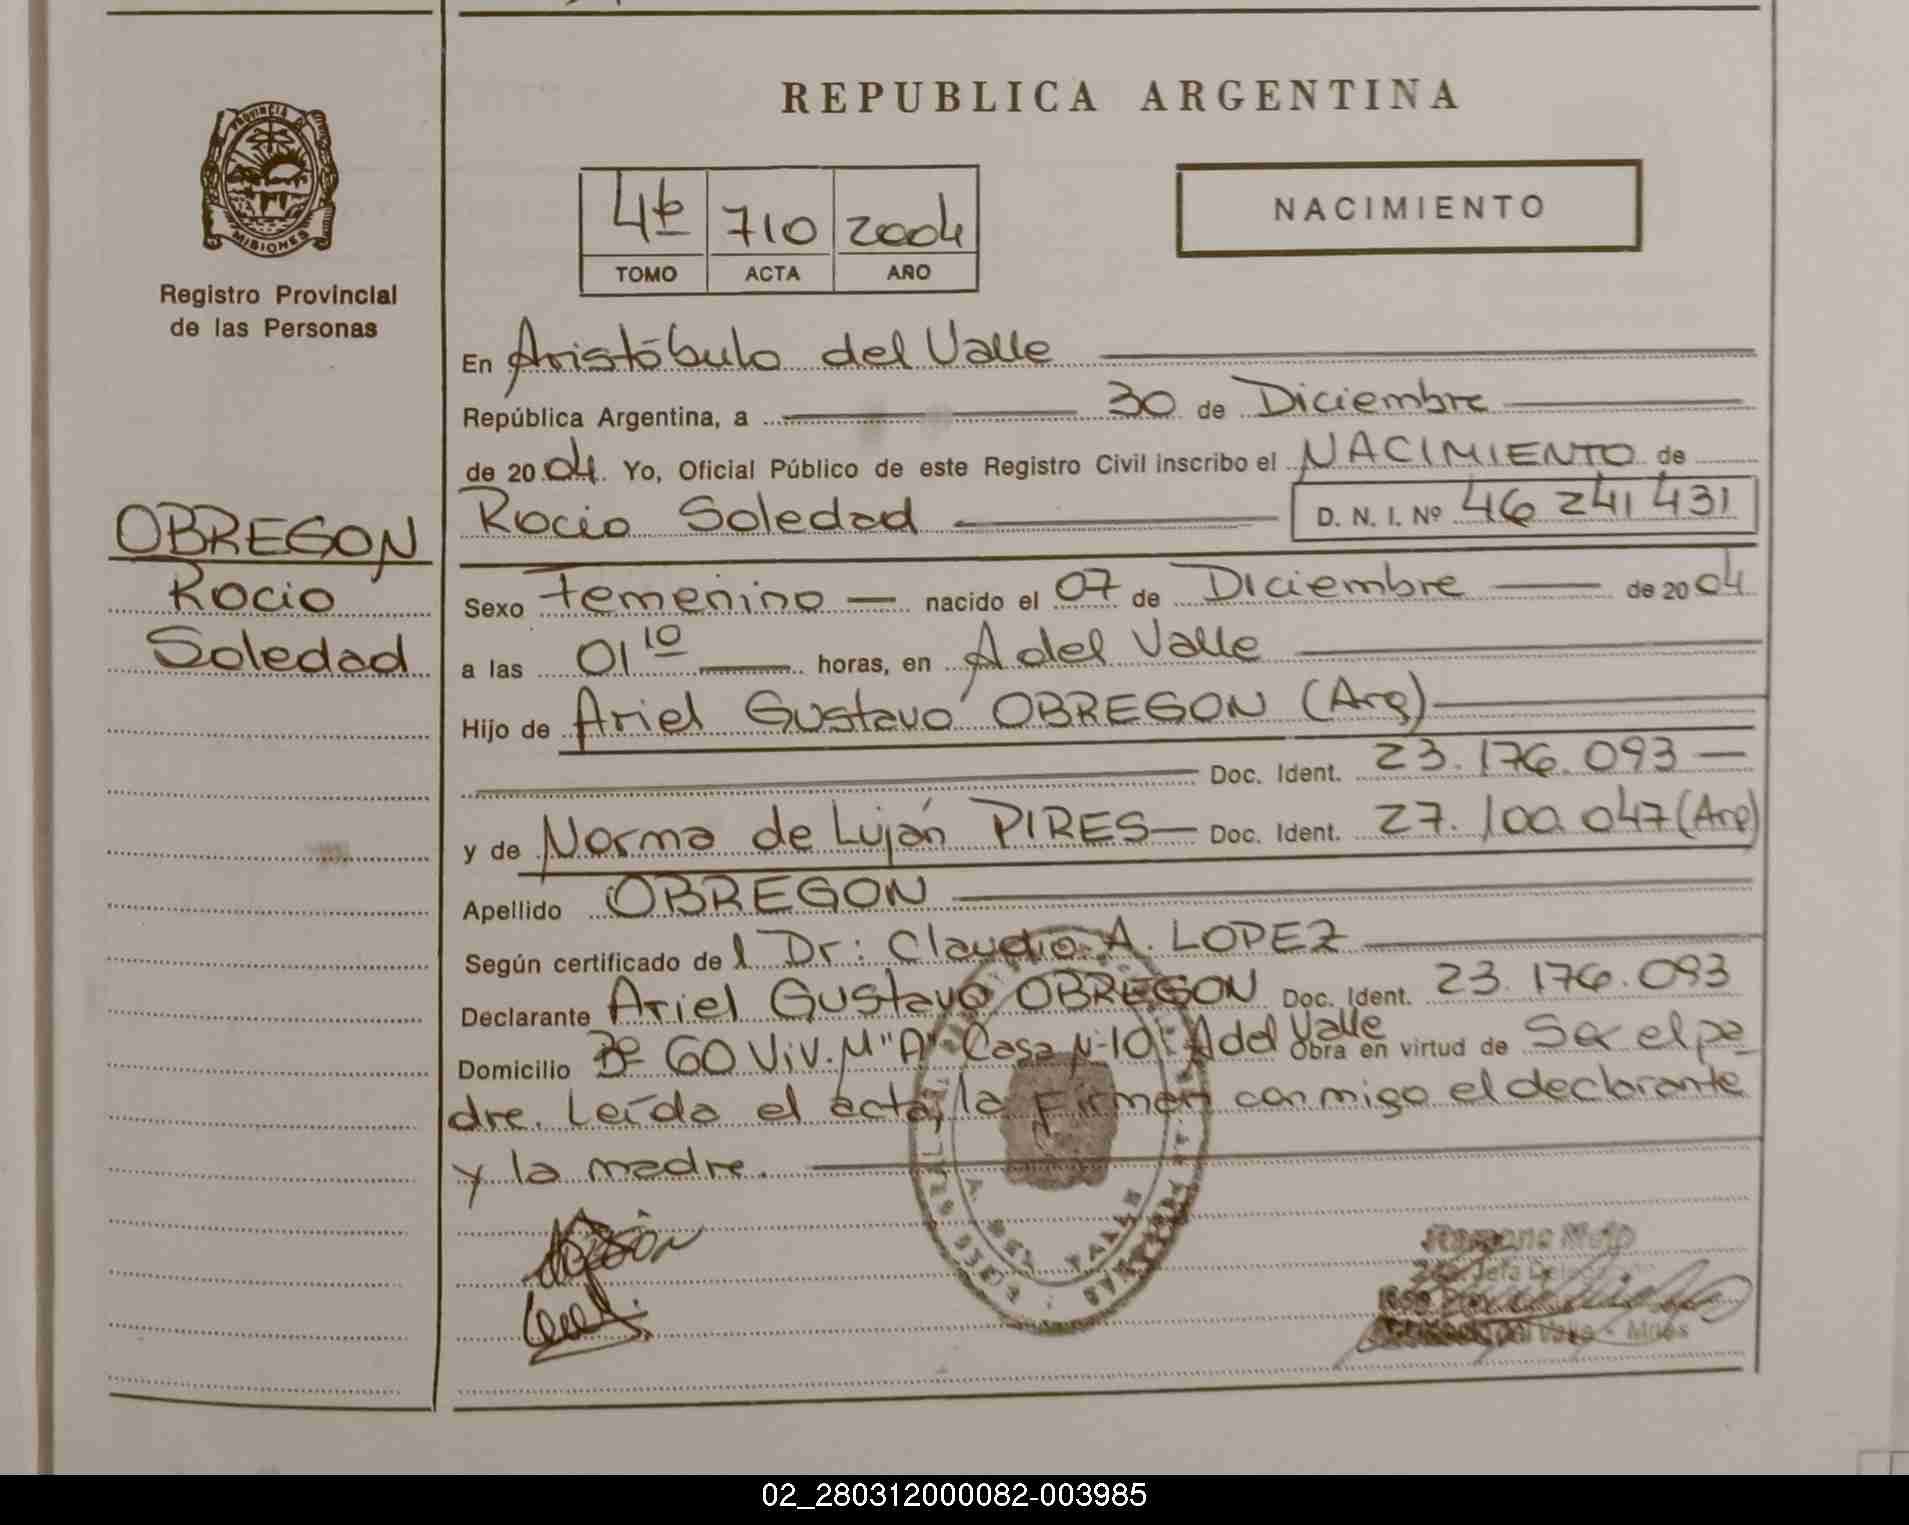 REPUBLICA ARGENTINA
PROVINCIA DE
MISIONES
Registro Provincial
de las Personas
4to 710 2004
TOMO ACTA AÑO
NACIMIENTO
En Aristóbulo del Valle
República Argentina, a 30 de Diciembre
de 2004. Yo, Oficial Público de este Registro Civil inscribo el NACIMIENTO de
Rocio Soledad D. N. I. Nº 46 241 431
OBREGON
Rocio
Soledad
Sexo Femenino nacido el 07 de Diciembre de 2004
a las 01 10 horas, en A del Valle
Hijo de Ariel Gustavo OBREGON (Arg)
Doc. Ident. 23.176.093
y de Norma de Luján PIRES Doc. Ident. 27.100.047 (Arg)
Apellido OBREGON
Según certificado del Dr: Claudio A. LOPEZ
Declarante Ariel Gustavo OBREGON Doc. Ident. 23.176.093
Domicilio Bº 60 Viv. M"A" Casa Nº 10: A del Valle Obra en virtud de Ser el pa
dre. Leída el acta, la firman conmigo el declarante
y la madre.
A. DEL VALLE
02_280312000082-003985